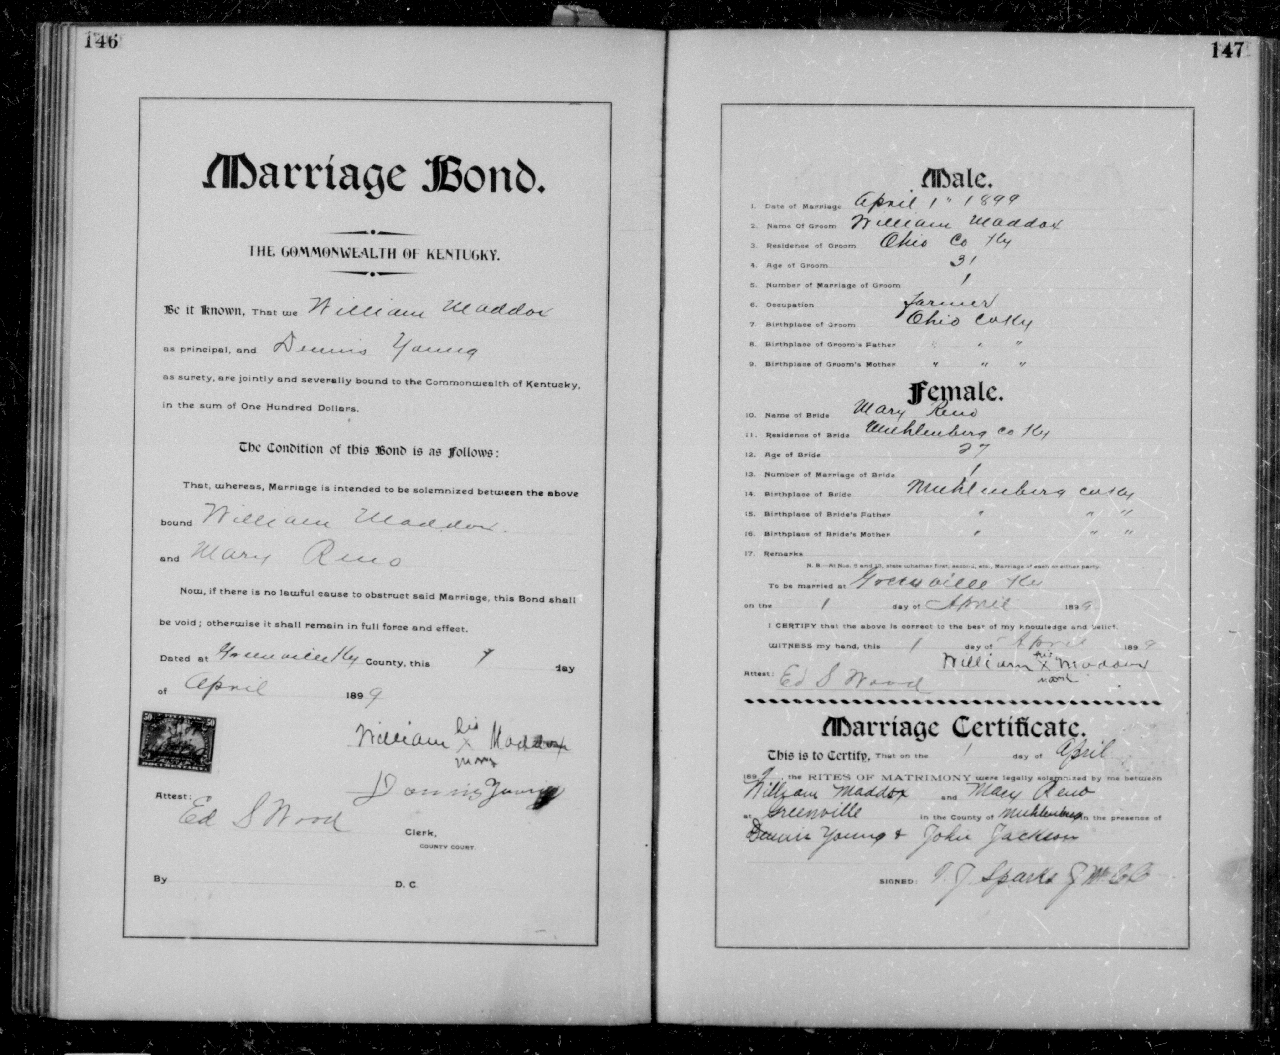 146
Marriage Bond.
THE COMMONWEALTH OF KENTUCKY.
Be it Known, That we William Maddox
as principal, and Dennis Young
as surety, are jointly and severally bound to the Commonwealth of Kentucky,
in the sum of One Hundred Dollars.
The Condition of this Bond is as Follows:
That, whereas, Marriage is intended to be solemnized between the above
bound William Maddox.
and Mary Reno
Now, if there is no lawful cause to obstruct said Marriage, this Bond shall
be void; otherwise it shall remain in full force and effect.
Dated at Greenville Ky County, this 1 day
of April 1899
50 50
William his x mark Maddox
Dennis Young
Attest:
Ed S Wood
Clerk,
COUNTY COURT.
By D. C.
147
Male.
1. Date of Marriage April 1" 1899
2. Name Of Groom William Maddox
3. Residence of Groom Ohio Co Ky
4. Age of Groom 31
5. Number of Marriage of Groom 1
6. Occupation farmer
7. Birthplace of Groom Ohio Co Ky
8. Birthplace of Groom's Father " " "
9. Birthplace of Groom's Mother " " "
Female.
10. Name of Bride Mary Reno
11. Residence of Bride Muhlenberg Co Ky
12. Age of Bride 27
13. Number of Marriage of Bride 1
14. Birthplace of Bride Muhlenberg Co Ky
15. Birthplace of Bride's Father " " "
16. Birthplace of Bride's Mother " " "
17. Remarks
N. B.—At Nos. 5 and 13, state whether first, second, etc., Marriage of each or either party.
To be married at Greenville Ky
on the 1 day of April 1899
I CERTIFY that the above is correct to the best of my knowledge and belief.
WITNESS my hand, this 1 day of April 1899
William his x mark Maddox
Attest: Ed S Wood
Marriage Certificate.
This is to Certify, That on the 1 day of April
1899, the RITES OF MATRIMONY were legally solemnized by me between
William Maddox and Mary Reno
at Greenville in the County of Muhlenberg in the presence of
Dennis Young & John Jackson
SIGNED: Sparks